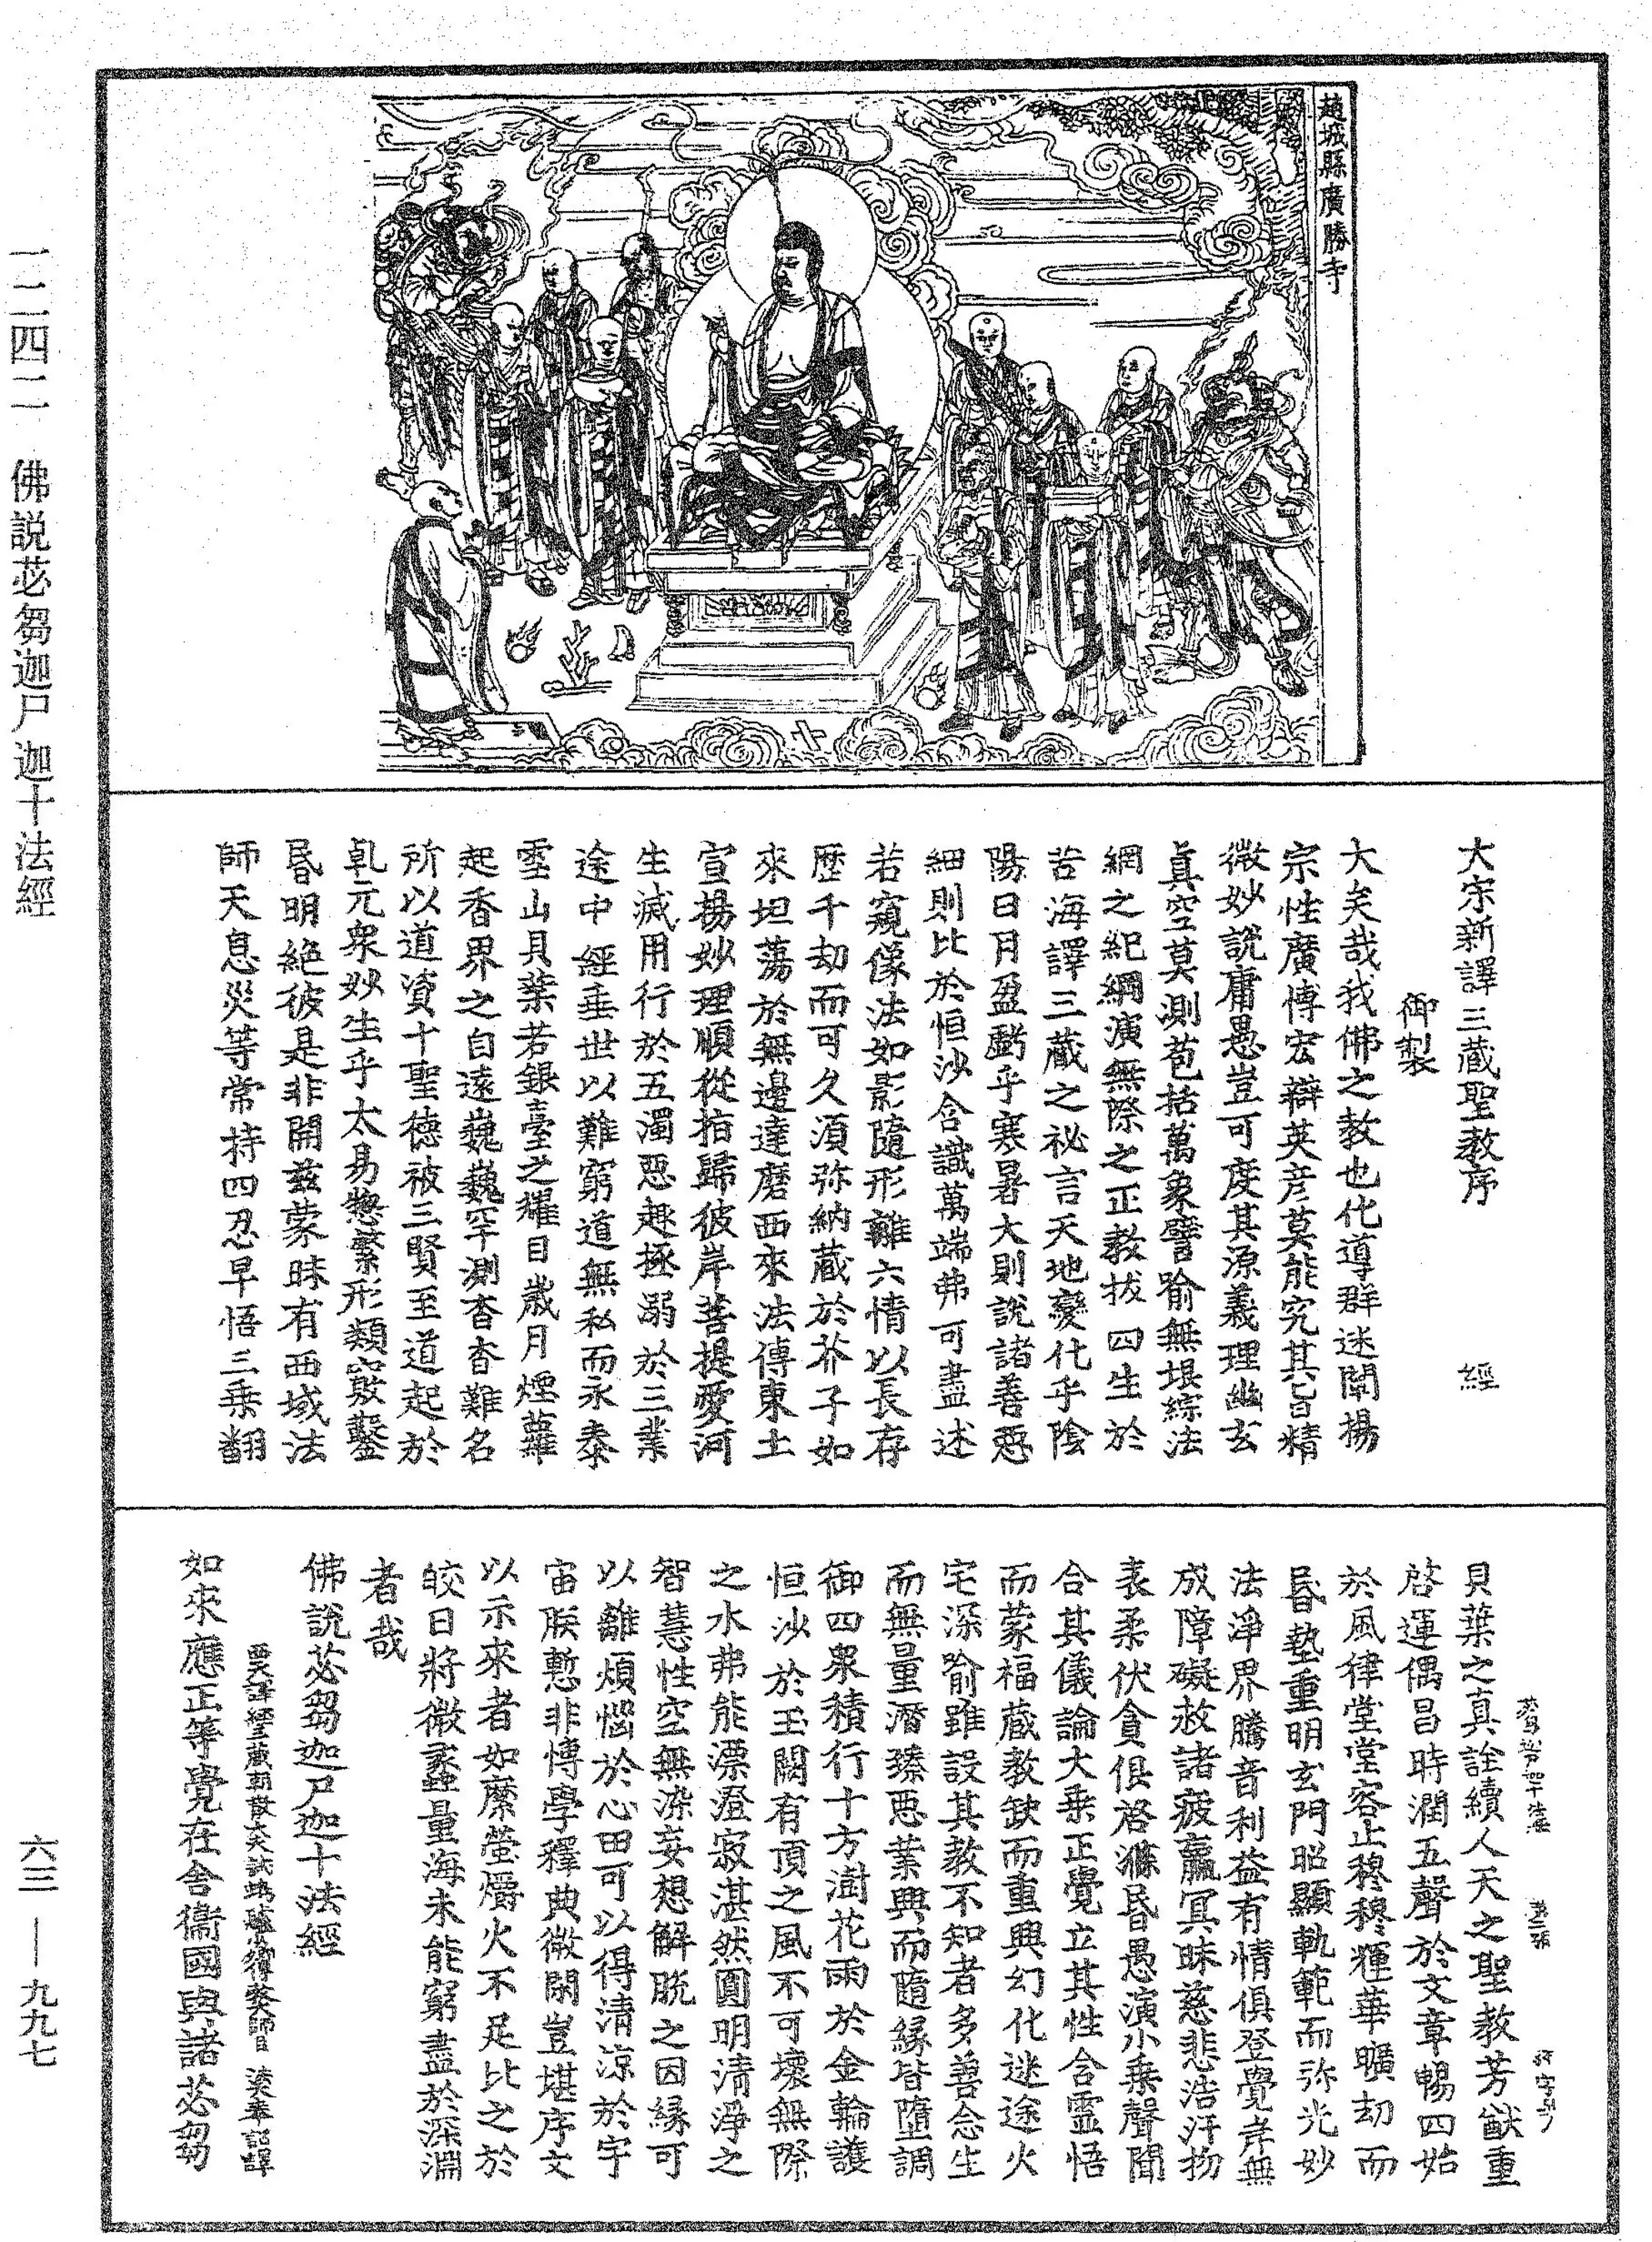 趙城縣廣勝寺
大宋新譯三藏聖教序 經
御製
大矣哉我佛之教也化導群迷闡揚
宗性廣博宏辯英彥莫能究其旨精
微妙說庸愚豈可度其源義理幽玄
真空莫測苞括萬象譬喻無垠綜法
網之紀綱演無際之正教拔四生於
苦海譯三藏之祕言天地變化乎陰
陽日月盈虧乎寒暑大則說諸善惡
細則比於恒沙含識萬端弗可盡述
若窺像法如影隨形離六情以長存
歷千劫而可久須弥納藏於芥子如
來坦蕩於無邊達磨西來法傳東土
宣揚妙理順從指歸彼岸菩提愛河
生滅用行於五濁惡趣拯溺於三業
途中經垂世以難窮道無私而永泰
雪山貝葉若銀臺之耀目歲月煙蘿
起香界之自遠巍巍罕測杳杳難名
所以道資十聖德被三賢至道起於
乹元衆妙生乎太易惣繫形類竅鑿
昏明絕彼是非開兹蒙昧有西域法
師天息災等常持四忍早悟三乘翻
貝葉之真詮續人天之聖教芳猷重
啓運偶昌時潤五聲於文章暢四始
於風律堂堂容止穆穆輝華曠劫而
昏墊重明玄門昭顯軌範而弥光妙
法淨界騰音利益有情俱登覺岸無
成障礙救諸疲羸冥昧慈悲浩汗物
表柔伏貪俱啓滌昏愚演小乘聲聞
合其儀論大乘正覺立其性含靈悟
而蒙福藏教缺而重興幻化迷途火
宅深喻雖設其教不知者多善念生
而無量潛臻惡業興而隨緣皆墮調
御四衆積行十方澍花雨於金輪護
恒沙於玉闕有頂之風不可壞無際
之水弗能漂澄寂湛然圓明清淨之
智慧性空無染妄想解脫之因緣可
以離煩惱於心田可以得清涼於宇
宙朕慙非博學釋典微閑豈堪序文
以示來者如縻螢爝火不足比之於
皎日將微蠡量海未能窮盡於深淵
者哉
佛說苾芻迦尸迦十法經
西天譯經三藏朝散大夫試鴻臚少卿 詔譯
如來應正等覺在舍衞國與諸苾芻
第二張
一二四二 佛説苾芻迦尸迦十法經
六三——九九七